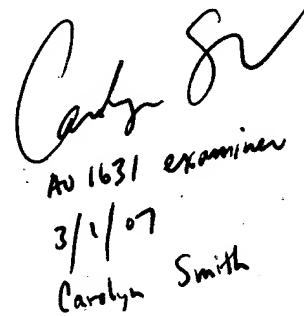 Carolyn S
AU 1631 examiner
3/1/07
Carolyn Smith